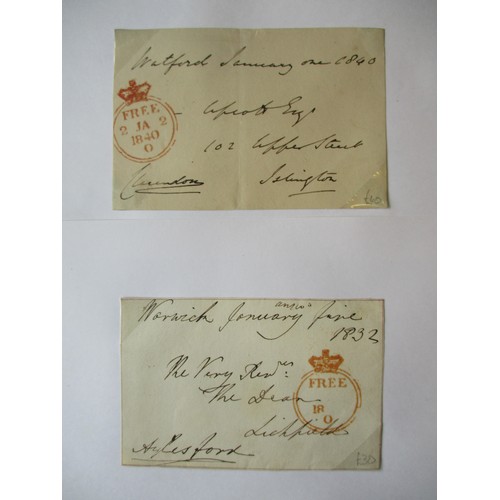 Watford January one 1840
FREE
2 JA 2
1840
O
Upcott Esqr
102 Upper Street
Islington
Clarendon
£30
answd
Warwick January five
1832
The Very Revd
The Dean
Lichfield
FREE
18
O
Aylesford
£30